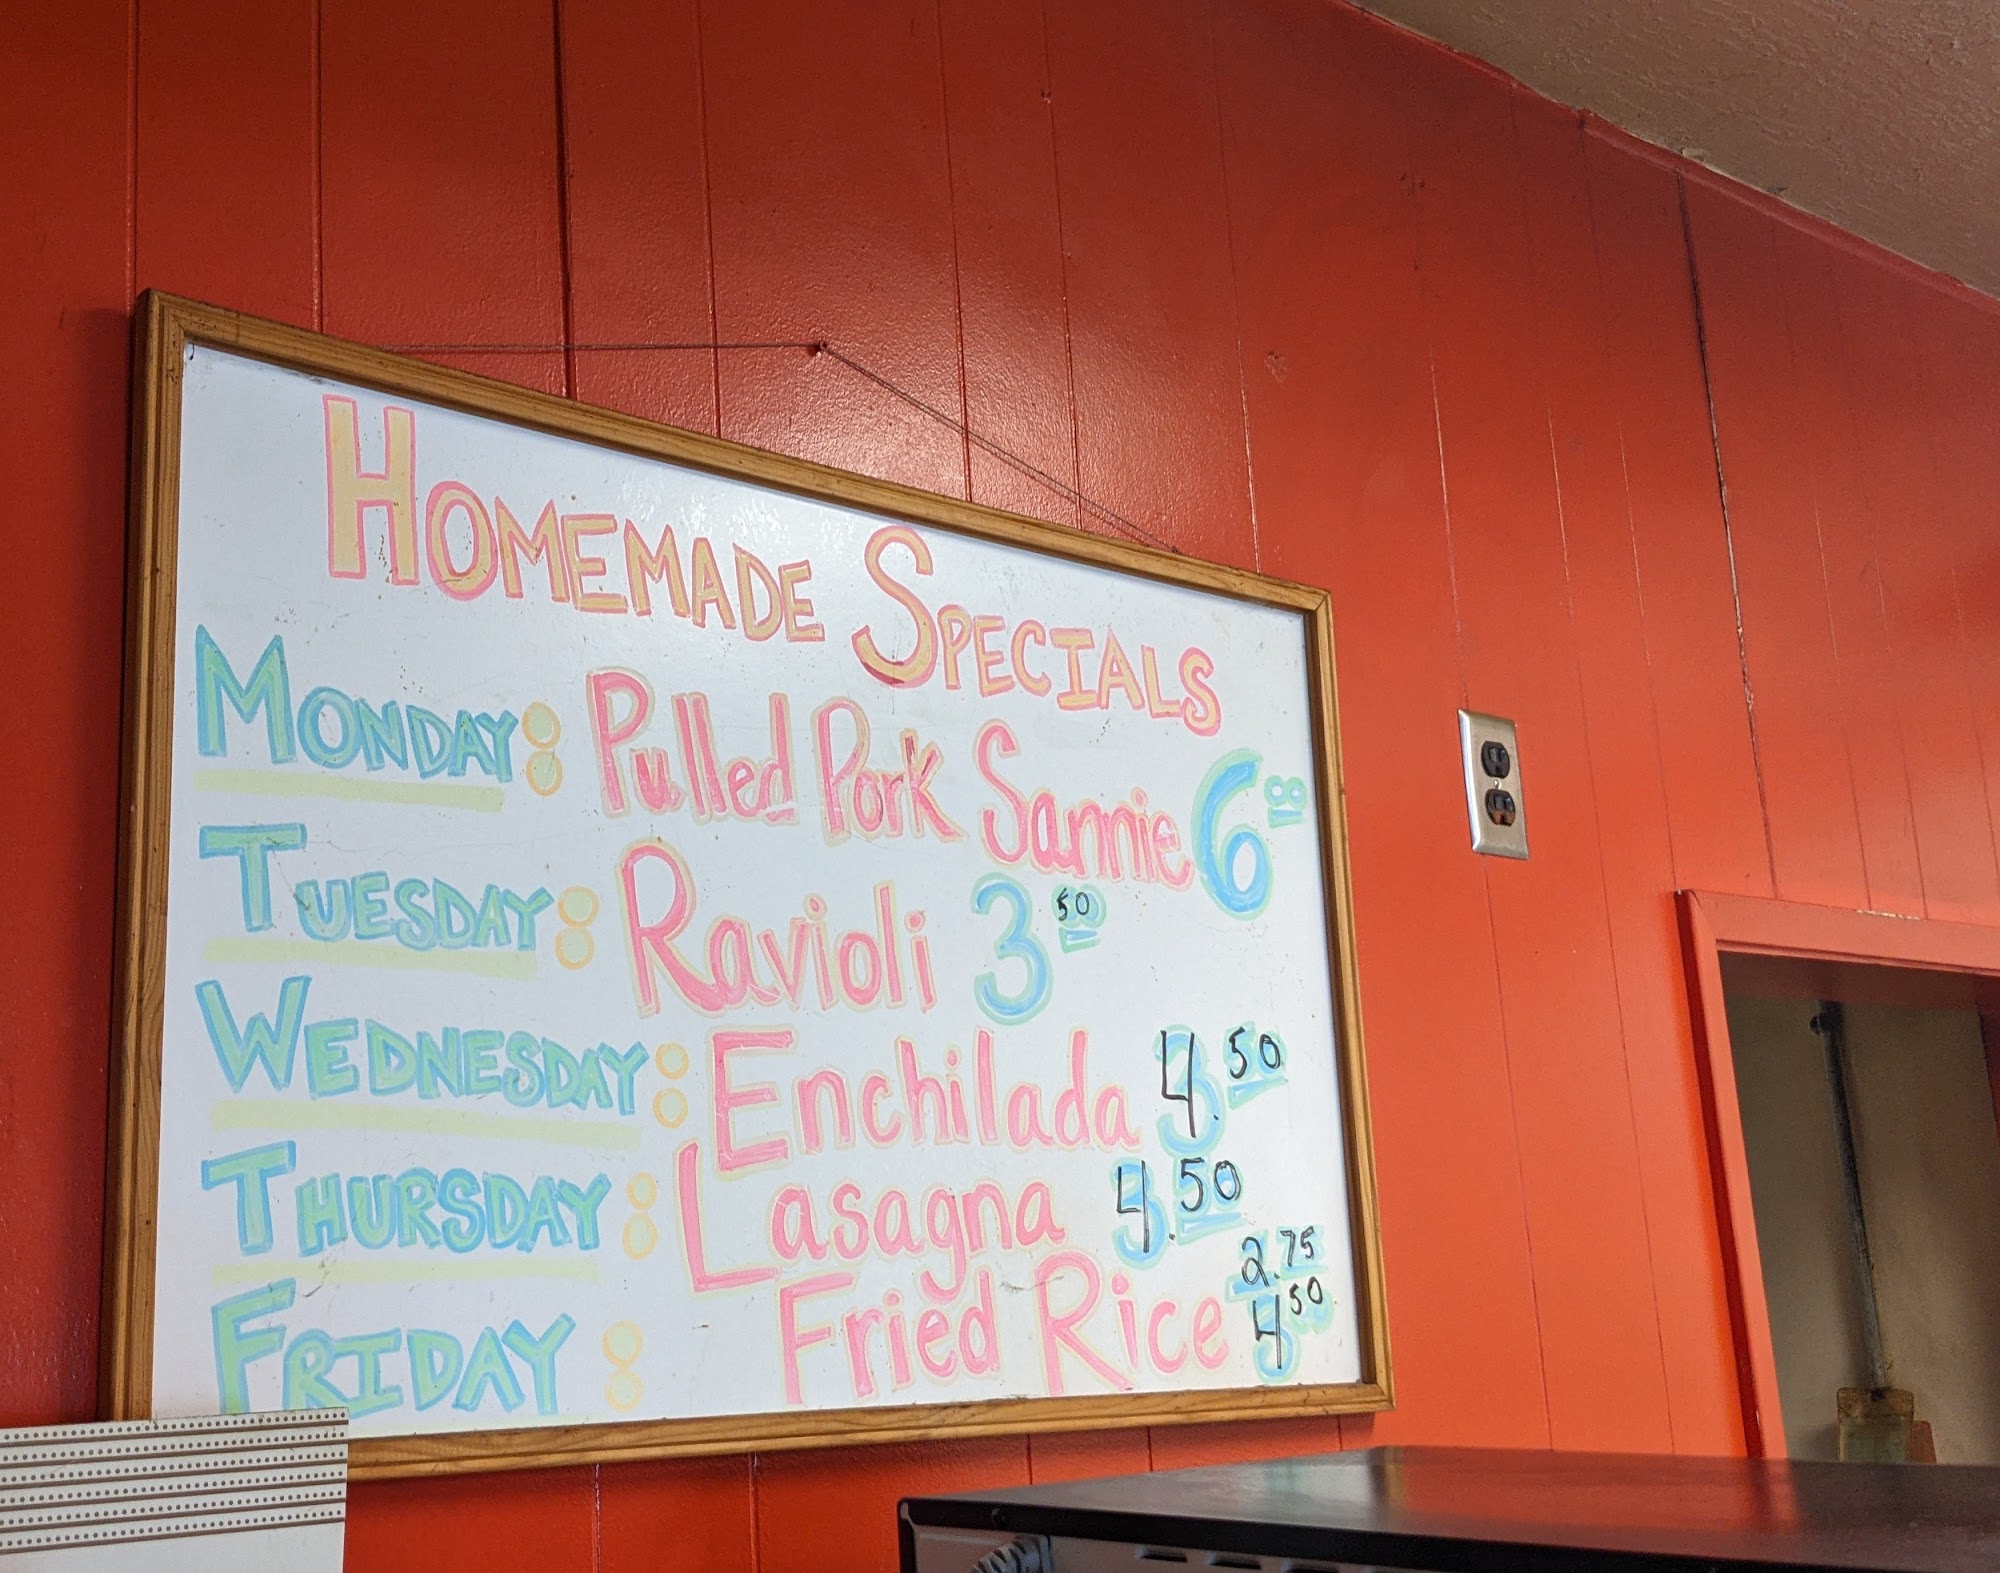 HOMEMADE SPECIALS
MONDAY: Pulled Pork Sammie 6 00
TUESDAY: Ravioli 3 50
WEDNESDAY: Enchilada 4.50
THURSDAY: Lasagna 4.50
FRIDAY: Fried Rice 2.75
4 50